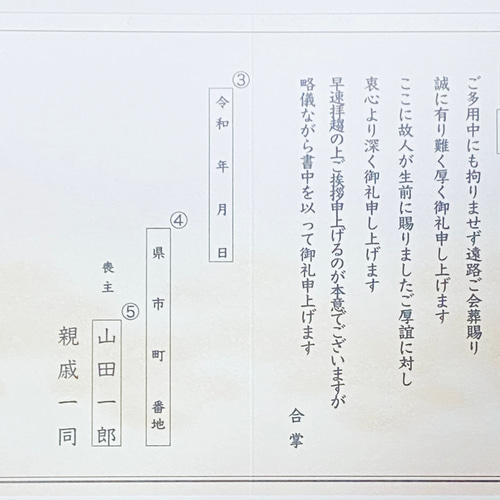 ご多用中にも拘りませず遠路ご会葬賜り
誠に有り難く厚く御礼申し上げます
ここに故人が生前に賜りましたご厚誼に対し
衷心より深く御礼申し上げます
早速拝趨の上ご挨拶申上げるのが本意でございますが
略儀ながら書中を以って御礼申上げます
合掌
③
令和 年 月 日
④
県 市 町 番地
喪主
⑤
山田一郎
親戚一同